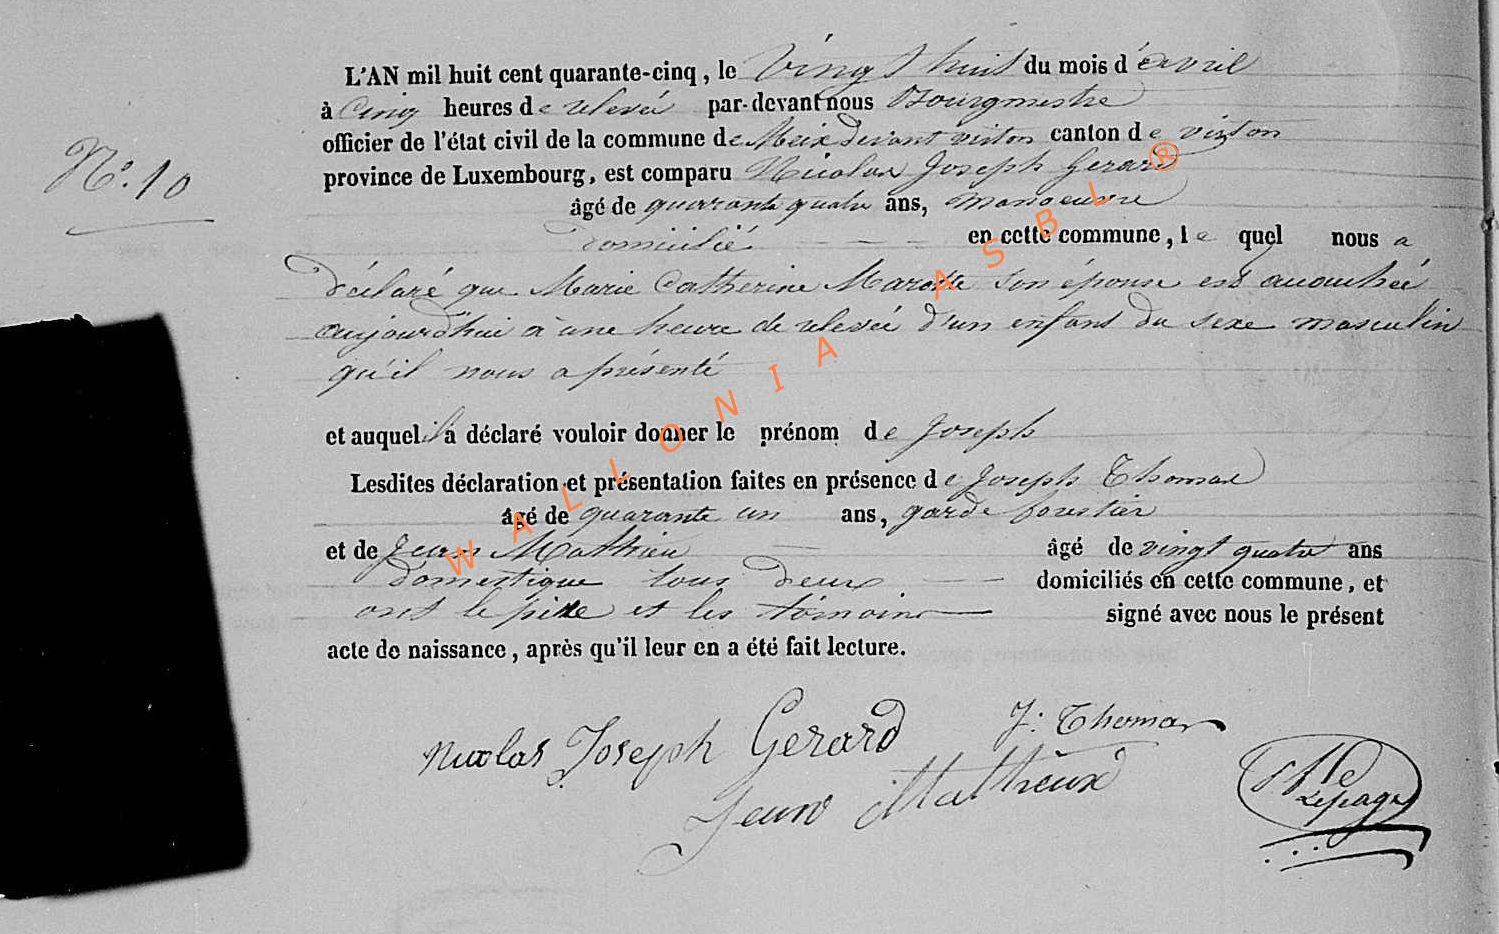 L'AN mil huit cent quarante-cinq, le vingt huit du mois d'avril
N°. 10
à cinq heures de relevée par-devant nous Bourgmestre
officier de l'état civil de la commune de Meix devant virton canton de virton
province de Luxembourg, est comparu Nicolas Joseph Gerard
âgé de quarante quatre ans, manoeuvre
domicilié en cette commune, le quel nous a
déclaré que Marie Catherine Marotte son épouse est accouchée
aujourd'hui à une heure de relevée d'un enfant du sexe masculin
qu'il nous a présenté
et auquel il a déclaré vouloir donner le prénom de Joseph
Lesdites déclaration et présentation faites en présence de Joseph Thomas
âgé de quarante un ans, garde forestier
et de Jean Mathieu âgé de vingt quatre ans
domestique tous deux domiciliés en cette commune, et
ont le père et les témoins signé avec nous le présent
acte de naissance, après qu'il leur en a été fait lecture.
Nicolas Joseph Gerard
J: Thomas
Jean Mathieux
Lepage
WALLONIA ASBL ®